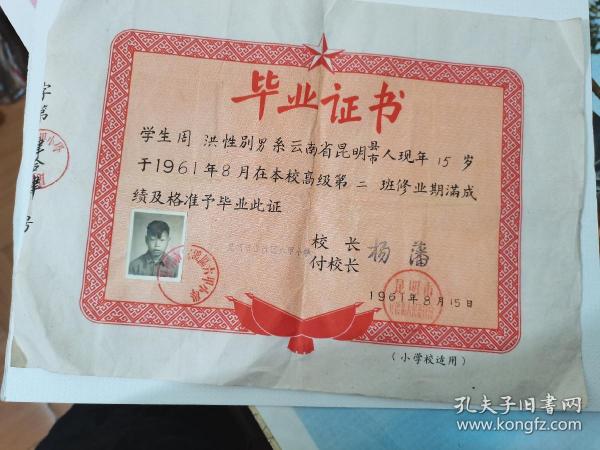 毕业证书
学生周 洪性别男系云南省昆明县市人现年15岁
于1961年8月在本校高级第二班修业期满成
绩及格准予毕业此证
校长
付校长 杨藩
1961年8月15日
(小学校适用)
字第
号
昆明市
孔夫子旧书网
www.kongfz.com